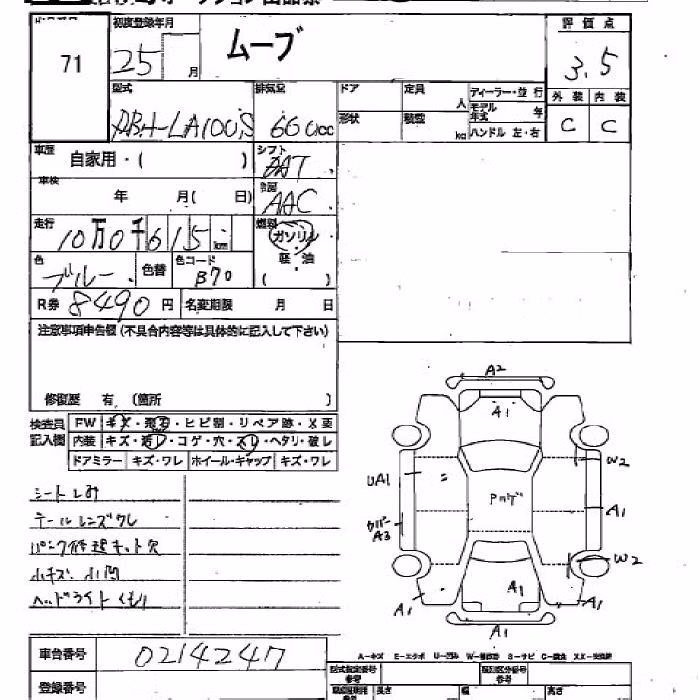 71
初度登録年月
25 月
ムーブ
評価点
3.5
外装 内装
C C
型式
DBA-LA100S
排気量
660cc
ドア
定員
人
形状
積載
kg
ディーラー・並行
モデル年式 年
ハンドル 左・右
車歴
自家用・( )
シフト
AT
車検
年 月( 日)
AAC
走行
10万0千615km
燃料
ガソリン
軽・油
( )
色
ブルー
色替
色コード
B70
R券 8490円
名変期限 月 日
注意事項申告欄(不具合内容等は具体的に記入して下さい)
修復歴 有 (箇所 )
検査員
記入欄
FW キズ・飛石・ヒビ割・リペア跡・X要
内装 キズ・汚レ・コゲ・穴・スレ・ヘタリ・破レ
ドアミラー キズ・ワレ ホイール・キャップ キズ・ワレ
シートしみ
テールレンズワレ
パンク修理キット欠
小キズ 小凹
ヘッドライトくもり
A2
A1
UA1
W2
Pカゲ
カバー
A3
A1
W2
A1
A1
A1
A1
車台番号 0214247
登録番号
A-キズ E-エクボ U-凹み W-補修跡 S-サビ C-腐食 XX-交換跡
型式指定番号
参考
類別区分番号
参考
長さ
幅
高さ